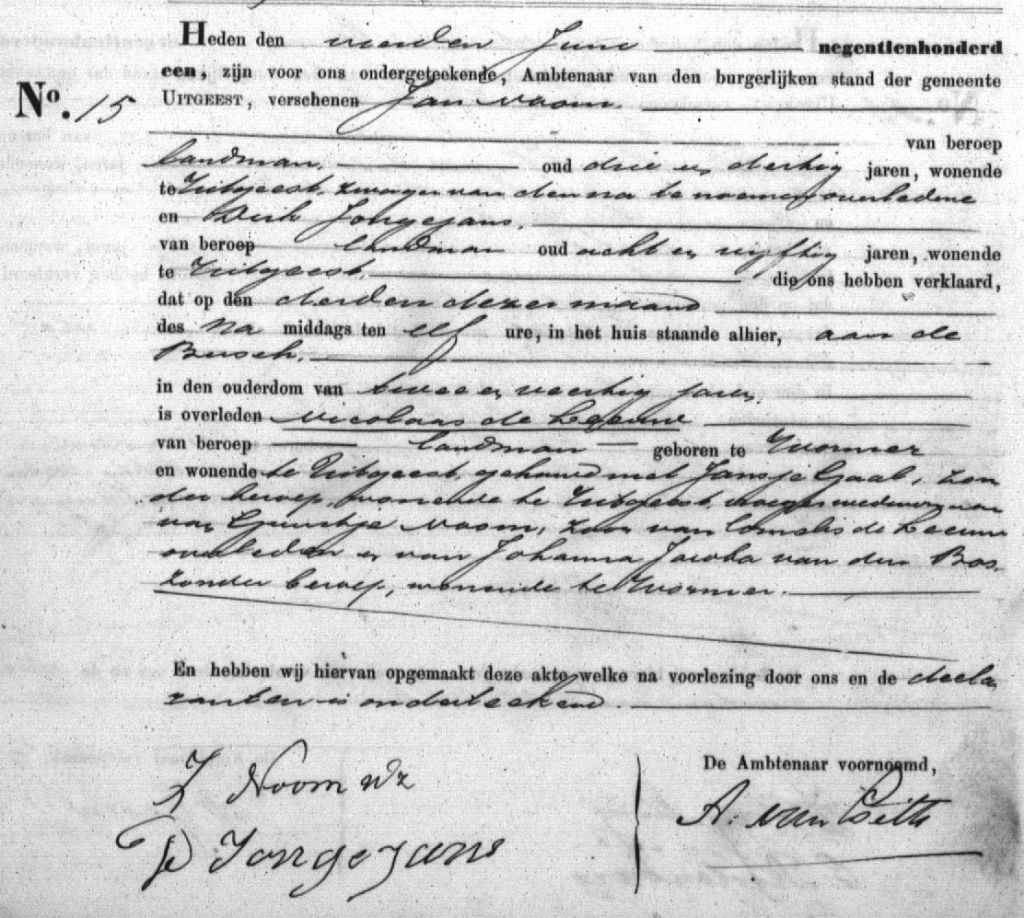 Heden den vierden Juni negentienhonderd
een, zijn voor ons ondergeteekende, Ambtenaar van den burgerlijken stand der gemeente
No. 15 UITGEEST, verschenen Jan Noom.
van beroep
landman, oud drie en dertig jaren, wonende
te Uitgeest, zwager van den na te noemen overledene
en Dirk Jongejans,
van beroep landman oud acht en vijftig jaren, wonende
te Uitgeest, die ons hebben verklaard,
dat op den derden dezer maand
des na middags ten elf ure, in het huis staande alhier, aan de
Busch,
in den ouderdom van twee en veertig jaren,
is overleden Nicolaas de Leeuw
van beroep landman geboren te Wormer
en wonende te Uitgeest, gehuwd met Jansje Gaal, zon
der beroep, wonende te Uitgeest, vroeger weduwnaar
van Guurtje Noom, zoon van Cornelis de Leeuw
overleden en van Johanna Jacoba van den Bos
zonder beroep, wonende te Wormer.
En hebben wij hiervan opgemaakt deze akte welke na voorlezing door ons en de decla
ranten is onderteekend.
De Ambtenaar voornoemd,
J Noom Wz
A. van
D Jongejans